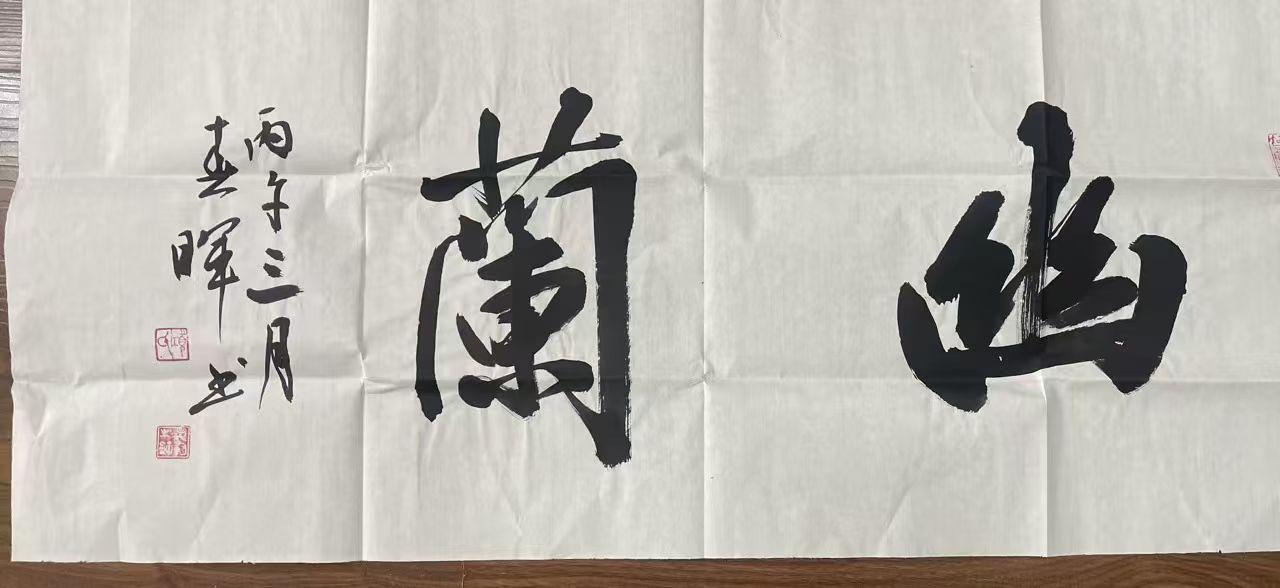 幽蘭
丙午三月
春暉书